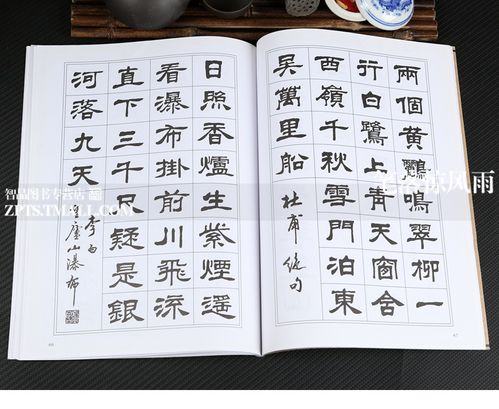 兩個黃鸝鳴翠柳一
行白鷺上青天窗含
西嶺千秋雪門泊東
吳萬里船
杜甫絕句
日照香爐生紫煙遙
看瀑布掛前川飛流
直下三千尺疑是銀
河落九天
李白
望廬山瀑布
47
智品图书专营店
ZPTS.TMALL.COM
笔落惊风雨